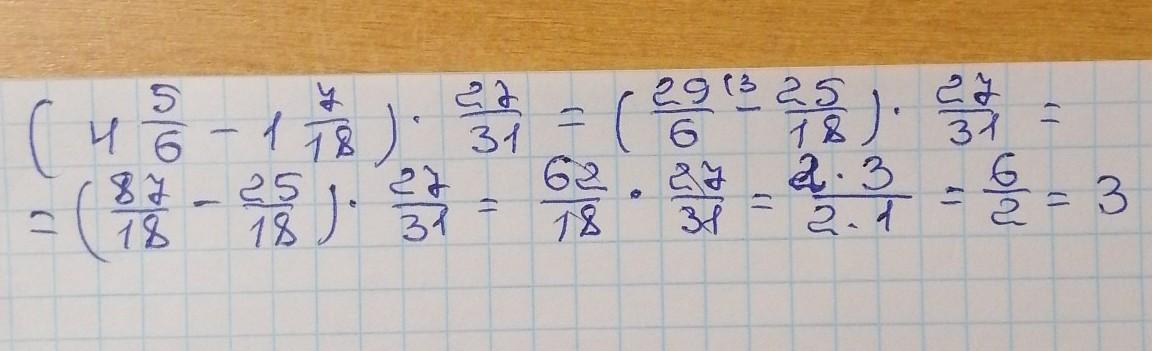 ( 4 5/6 - 1 7/18 ) · 27/31 = ( 29/6 (3 - 25/18 ) · 27/31 =
= ( 87/18 - 25/18 ) · 27/31 = 62/18 · 27/31 = 2·3/2·1 = 6/2 = 3